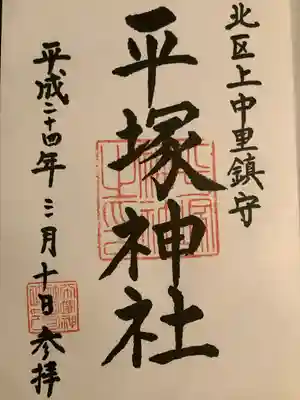 北区上中里鎮守
平塚神社
平成二十四年三月十日参拝